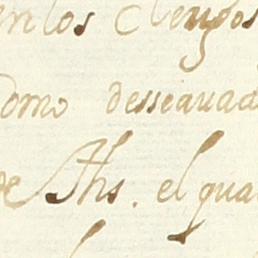 en los Clerigos
como desseauad
de Xhs. el qual